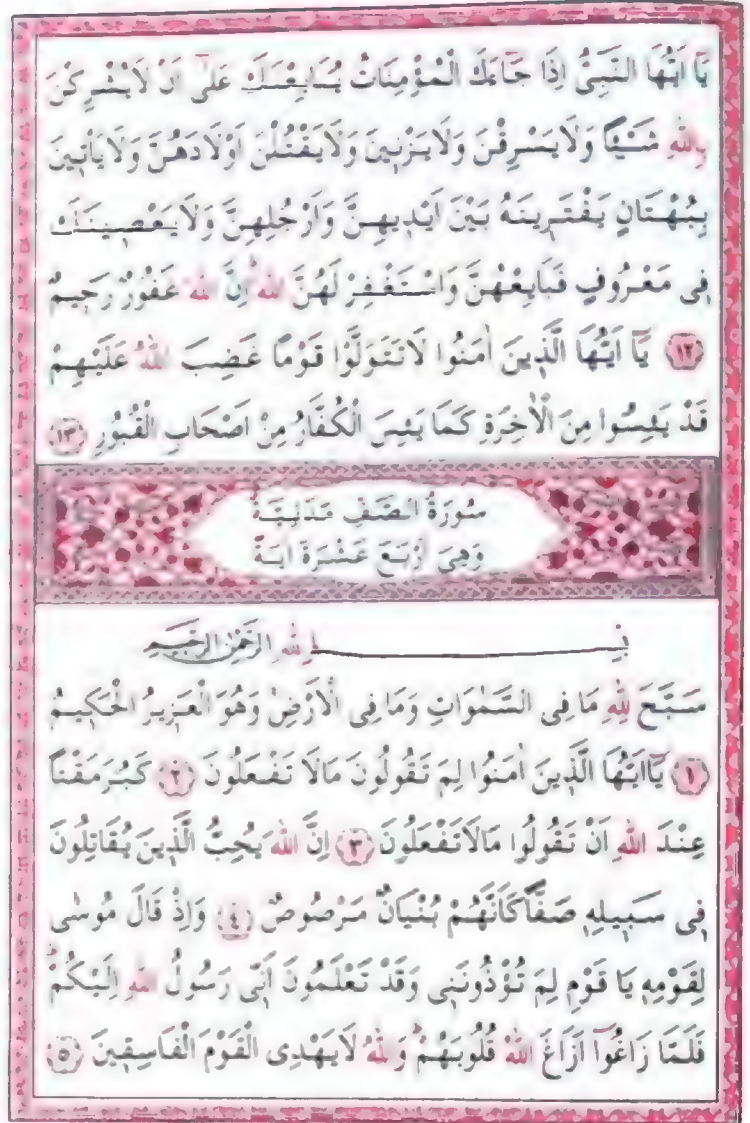 يَٓا اَيُّهَا النَّبِيُّ اِذَا جَٓاءَكَ الْمُؤْمِنَاتُ يُبَايِعْنَكَ عَلٰٓى اَنْ لَا يُشْرِكْنَ
بِاللّٰهِ شَيْـًٔا وَلَا يَسْرِقْنَ وَلَا يَزْن۪ينَ وَلَا يَقْتُلْنَ اَوْلَادَهُنَّ وَلَا يَأْت۪ينَ
بِبُهْتَانٍ يَفْتَر۪ينَهُ بَيْنَ اَيْد۪يهِنَّ وَاَرْجُلِهِنَّ وَلَا يَعْص۪ينَكَ
ف۪ي مَعْرُوفٍ فَبَايِعْهُنَّ وَاسْتَغْفِرْ لَهُنَّ اللّٰهَۜ اِنَّ اللّٰهَ غَفُورٌ رَح۪يمٌ
﴿١٢﴾ يَٓا اَيُّهَا الَّذ۪ينَ اٰمَنُوا لَا تَتَوَلَّوْا قَوْمًا غَضِبَ اللّٰهُ عَلَيْهِمْ
قَدْ يَئِسُوا مِنَ الْاٰخِرَةِ كَمَا يَئِسَ الْكُفَّارُ مِنْ اَصْحَابِ الْقُبُورِ ﴿١٣﴾
سُورَةُ الصَّفِّ مَدَنِيَّةٌ
وَهِيَ اَرْبَعَ عَشْرَةَ اٰيَةً
بِسْمِ اللّٰهِ الرَّحْمٰنِ الرَّح۪يمِ
سَبَّحَ لِلّٰهِ مَا فِي السَّمٰوَاتِ وَمَا فِي الْاَرْضِۚ وَهُوَ الْعَز۪يزُ الْحَك۪يمُ
﴿١﴾ يَٓا اَيُّهَا الَّذ۪ينَ اٰمَنُوا لِمَ تَقُولُونَ مَا لَا تَفْعَلُونَ ﴿٢﴾ كَبُرَ مَقْتًا
عِنْدَ اللّٰهِ اَنْ تَقُولُوا مَا لَا تَفْعَلُونَ ﴿٣﴾ اِنَّ اللّٰهَ يُحِبُّ الَّذ۪ينَ يُقَاتِلُونَ
ف۪ي سَب۪يلِه۪ صَفًّا كَاَنَّهُمْ بُنْيَانٌ مَرْصُوصٌ ﴿٤﴾ وَاِذْ قَالَ مُوسٰى
لِقَوْمِه۪ يَا قَوْمِ لِمَ تُؤْذُونَن۪ي وَقَدْ تَعْلَمُونَ اَنّ۪ي رَسُولُ اللّٰهِ اِلَيْكُمْۜ
فَلَمَّا زَاغُٓوا اَزَاغَ اللّٰهُ قُلُوبَهُمْۜ وَاللّٰهُ لَا يَهْدِي الْقَوْمَ الْفَاسِق۪ينَ ﴿٥﴾